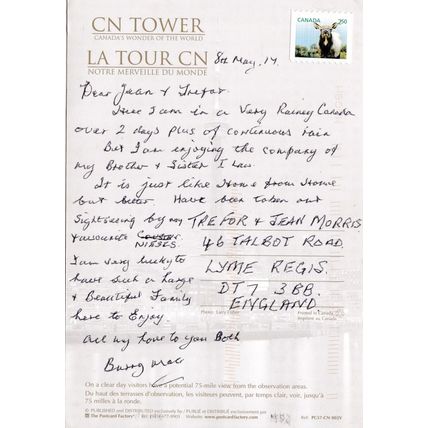 CN TOWER
CANADA'S WONDER OF THE WORLD
LA TOUR CN
NOTRE MERVEILLE DU MONDE
CANADA 250
8th May, 14.
Dear Jean & Trefor
Here I am in a Very Rainey Canada
over 2 days plus of continuous rain
But I am enjoying the company of
my Brother & Sister I Law.
It is just like Home from Home
but better. Have been taken out
Sightseeing by my
favourite
NIESES.
I am very lucky to
have such a large
& Beautiful Family
here to Enjoy.
All my love to you Both
TREFOR & JEAN MORRIS
46 TALBOT ROAD
LYME REGIS.
DT7 3BB.
ENGLAND
Photo: Larry Fisher
Printed in Canada
Imprimé au Canada
On a clear day visitors have a potential 75-mile view from the observation areas.
Du haut des terrasses d'observation, les visiteurs peuvent, par temps clair, voir, jusqu'à
75 milles à la ronde.
© PUBLISHED and DISTRIBUTED exclusively by / PUBLIÉ et DISTRIBUÉ exclusivement par
The Postcard Factory® Website: www.postcardfactory.com